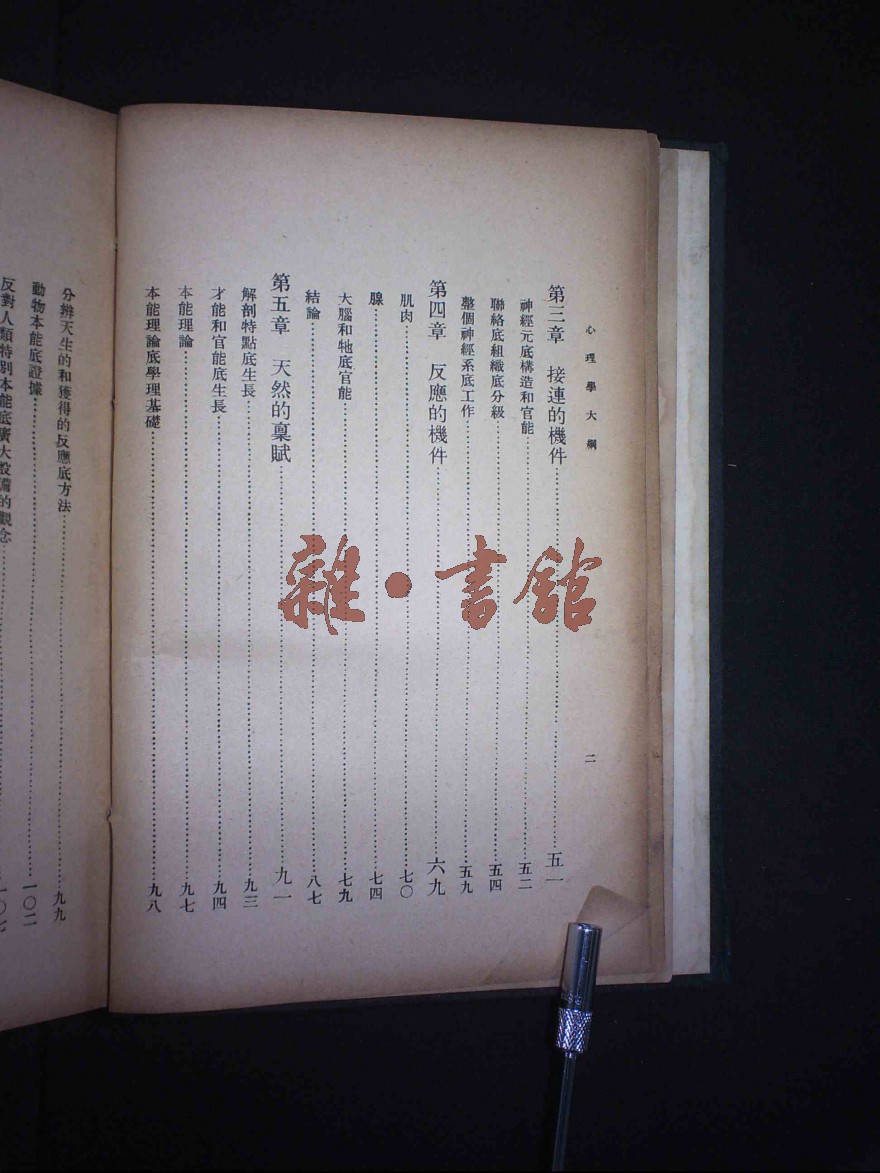 心理學大綱
二
第三章 接連的機件……五一
神經元底構造和官能……五二
聯絡底組織底分級……五四
整個神經系底工作……五九
第四章 反應的機件……六九
肌肉……七〇
腺……七四
大腦和牠底官能……七九
結論……八七
第五章 天然的稟賦……九一
解剖特點底生長……九三
才能和官能底生長……九四
本能理論……九七
本能理論底學理基礎……九八
分辨天生的和獲得的反應底方法……九九
動物本能底證據……一〇二
反對人類特別本能底廣大設備的觀念……一〇七
雜·書館